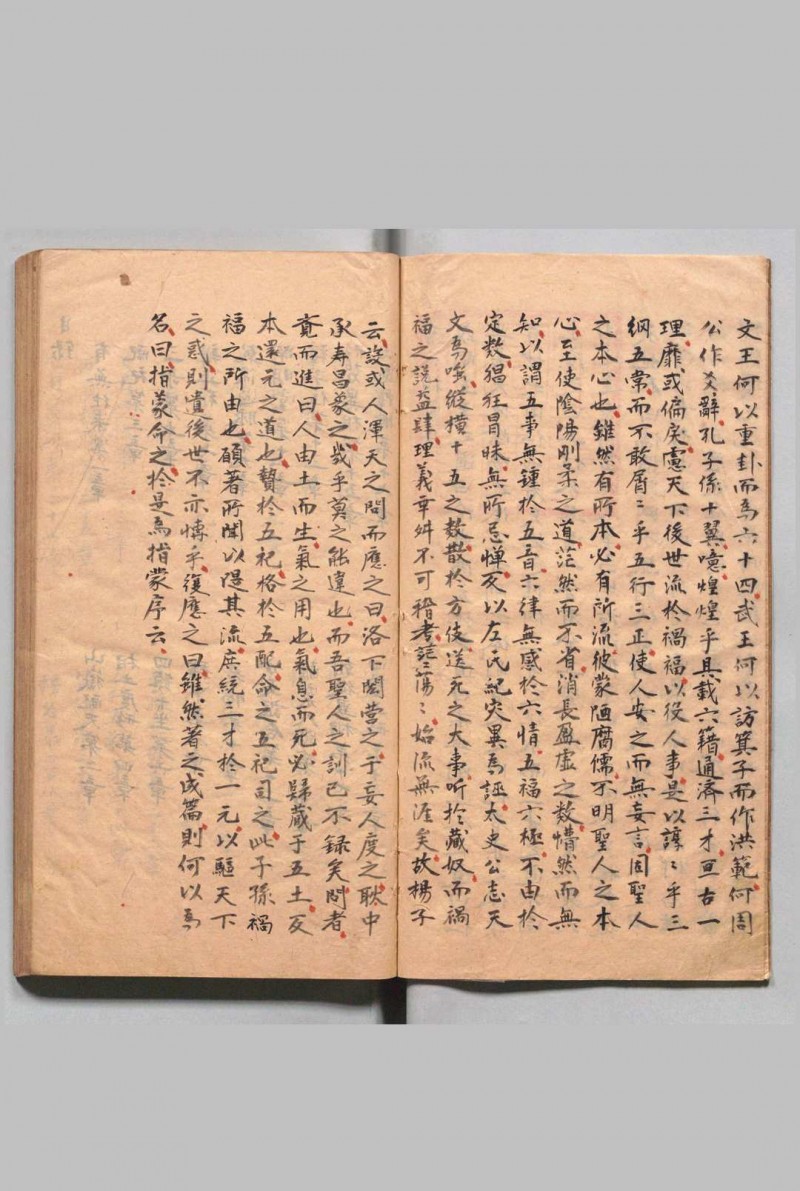 文王何以重卦而為六十四武王何以訪箕子而作洪範何周
公作爻辭孔子係十翼噫煌煌乎具載六籍通濟三才亘古一
理靡或偏戾慮天下後世流於禍福以役人事是以諄〻乎三
綱五常而不敢屑〻乎五行三正使人安之而無妄言固聖人
之本心也雖然有所本必有所流彼蒙陋腐儒不明聖人之本
心至使陰陽剛柔之道茫然而不省消長盈虛之数懵然而無
知以謂五事無鍾於五音六律無感於六情五福六極不由於
定数猖狂冒昧無所忌憚反以左氏紀灾異為誣太史公志天
文為嗤縱橫十五之数散於方伎送死之大事听於藏奴而禍
福之說益肆理義幸舛不可稽考謊〻蕩〻始流無涯矣故楊子
云設或人渾天之問而應之曰洛下閎營之于妄人度之耿中
承寿昌象之幾乎莫之能違也而吾聖人之訓已不録矣問者
竟而進曰人由土而生氣之用也氣息而死必歸藏于五土反
本還元之道也贊於五祀格於五配命之五祀司之此子孫禍
福之所由也碩著所聞以隄其流庶統三才於一元以驅天下
之惑則遺後世不亦愽乎復應之曰雖然著之成篇則何以為
名曰指蒙命之於是為指蒙序云